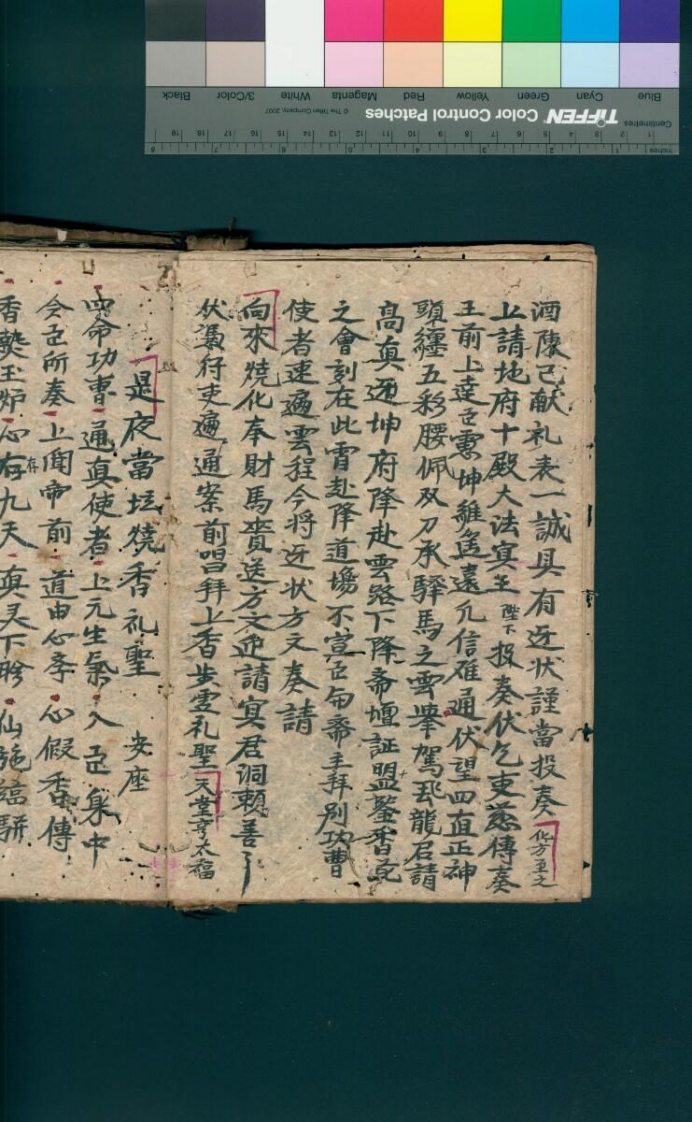 Blue Cyan Green Yellow Red Magenta White 3/Color Black
TIFFEN Color Control Patches
© The Tiffen Company, 2007
Centimetres
Inches
酒陳已献礼表一誠具有近状謹當投奏
化方至之
上請地府十殿大法冥王陛下投奏伏乞吏慈傳奏
王前上達臣雲坤維遙遠凡信难通伏望四直正神
頭纏五彩腰佩双刀承驛馬之雲轝駕飛龍君請
高真通坤府降赴雲路下降斋壇証盟鑒香
之會刻在此霄赴降道場不臣司斋主拜别功曹
使者速遍雲程今將近状方文奏請
向來燒化奉財馬賫送方文迎請冥君洞頼善了
伏馮行吏遍通案前唱拜上香步虚礼聖
天堂享太福
是夜當坛燒香礼聖 安座
四命功曹通真使者上元生炁入臣身中
令臣所奏上聞帝前道由心李心假香傳
香爇玉炉心存九天真灵下盻仙旆臨駢